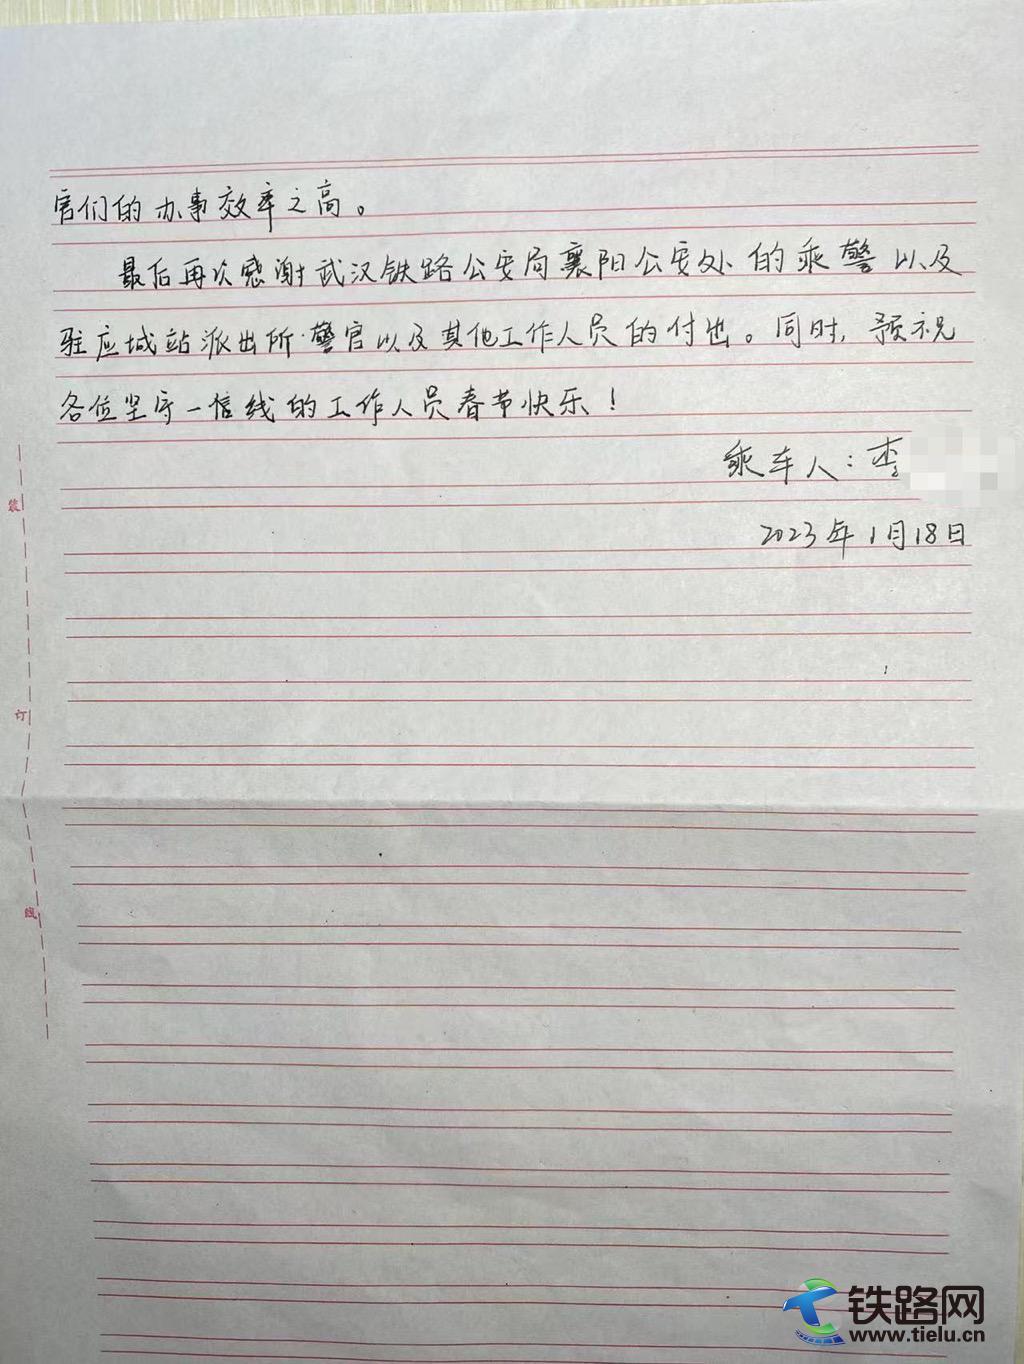 官们的办事效率之高。
最后再次感谢武汉铁路公安局襄阳公安处的乘警以及
驻应城站派出所警官以及其他工作人员的付出。同时,预祝
各位坚守一线的工作人员春节快乐!
乘车人:李
2023年1月18日
装
订
线
铁路网
www.tielu.cn